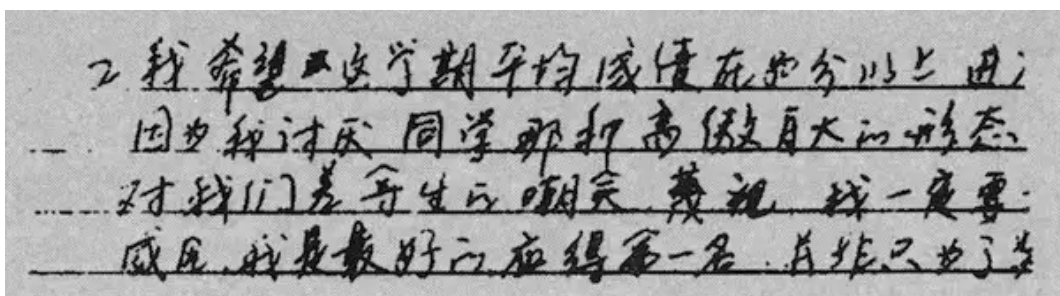 2 我希望这学期平均成绩在 分以上 进
因为我讨厌同学那种高傲自大的形态
对我们差等生的嘲笑 蔑视 我一定要
我是最好的应得第一名 并非只为了